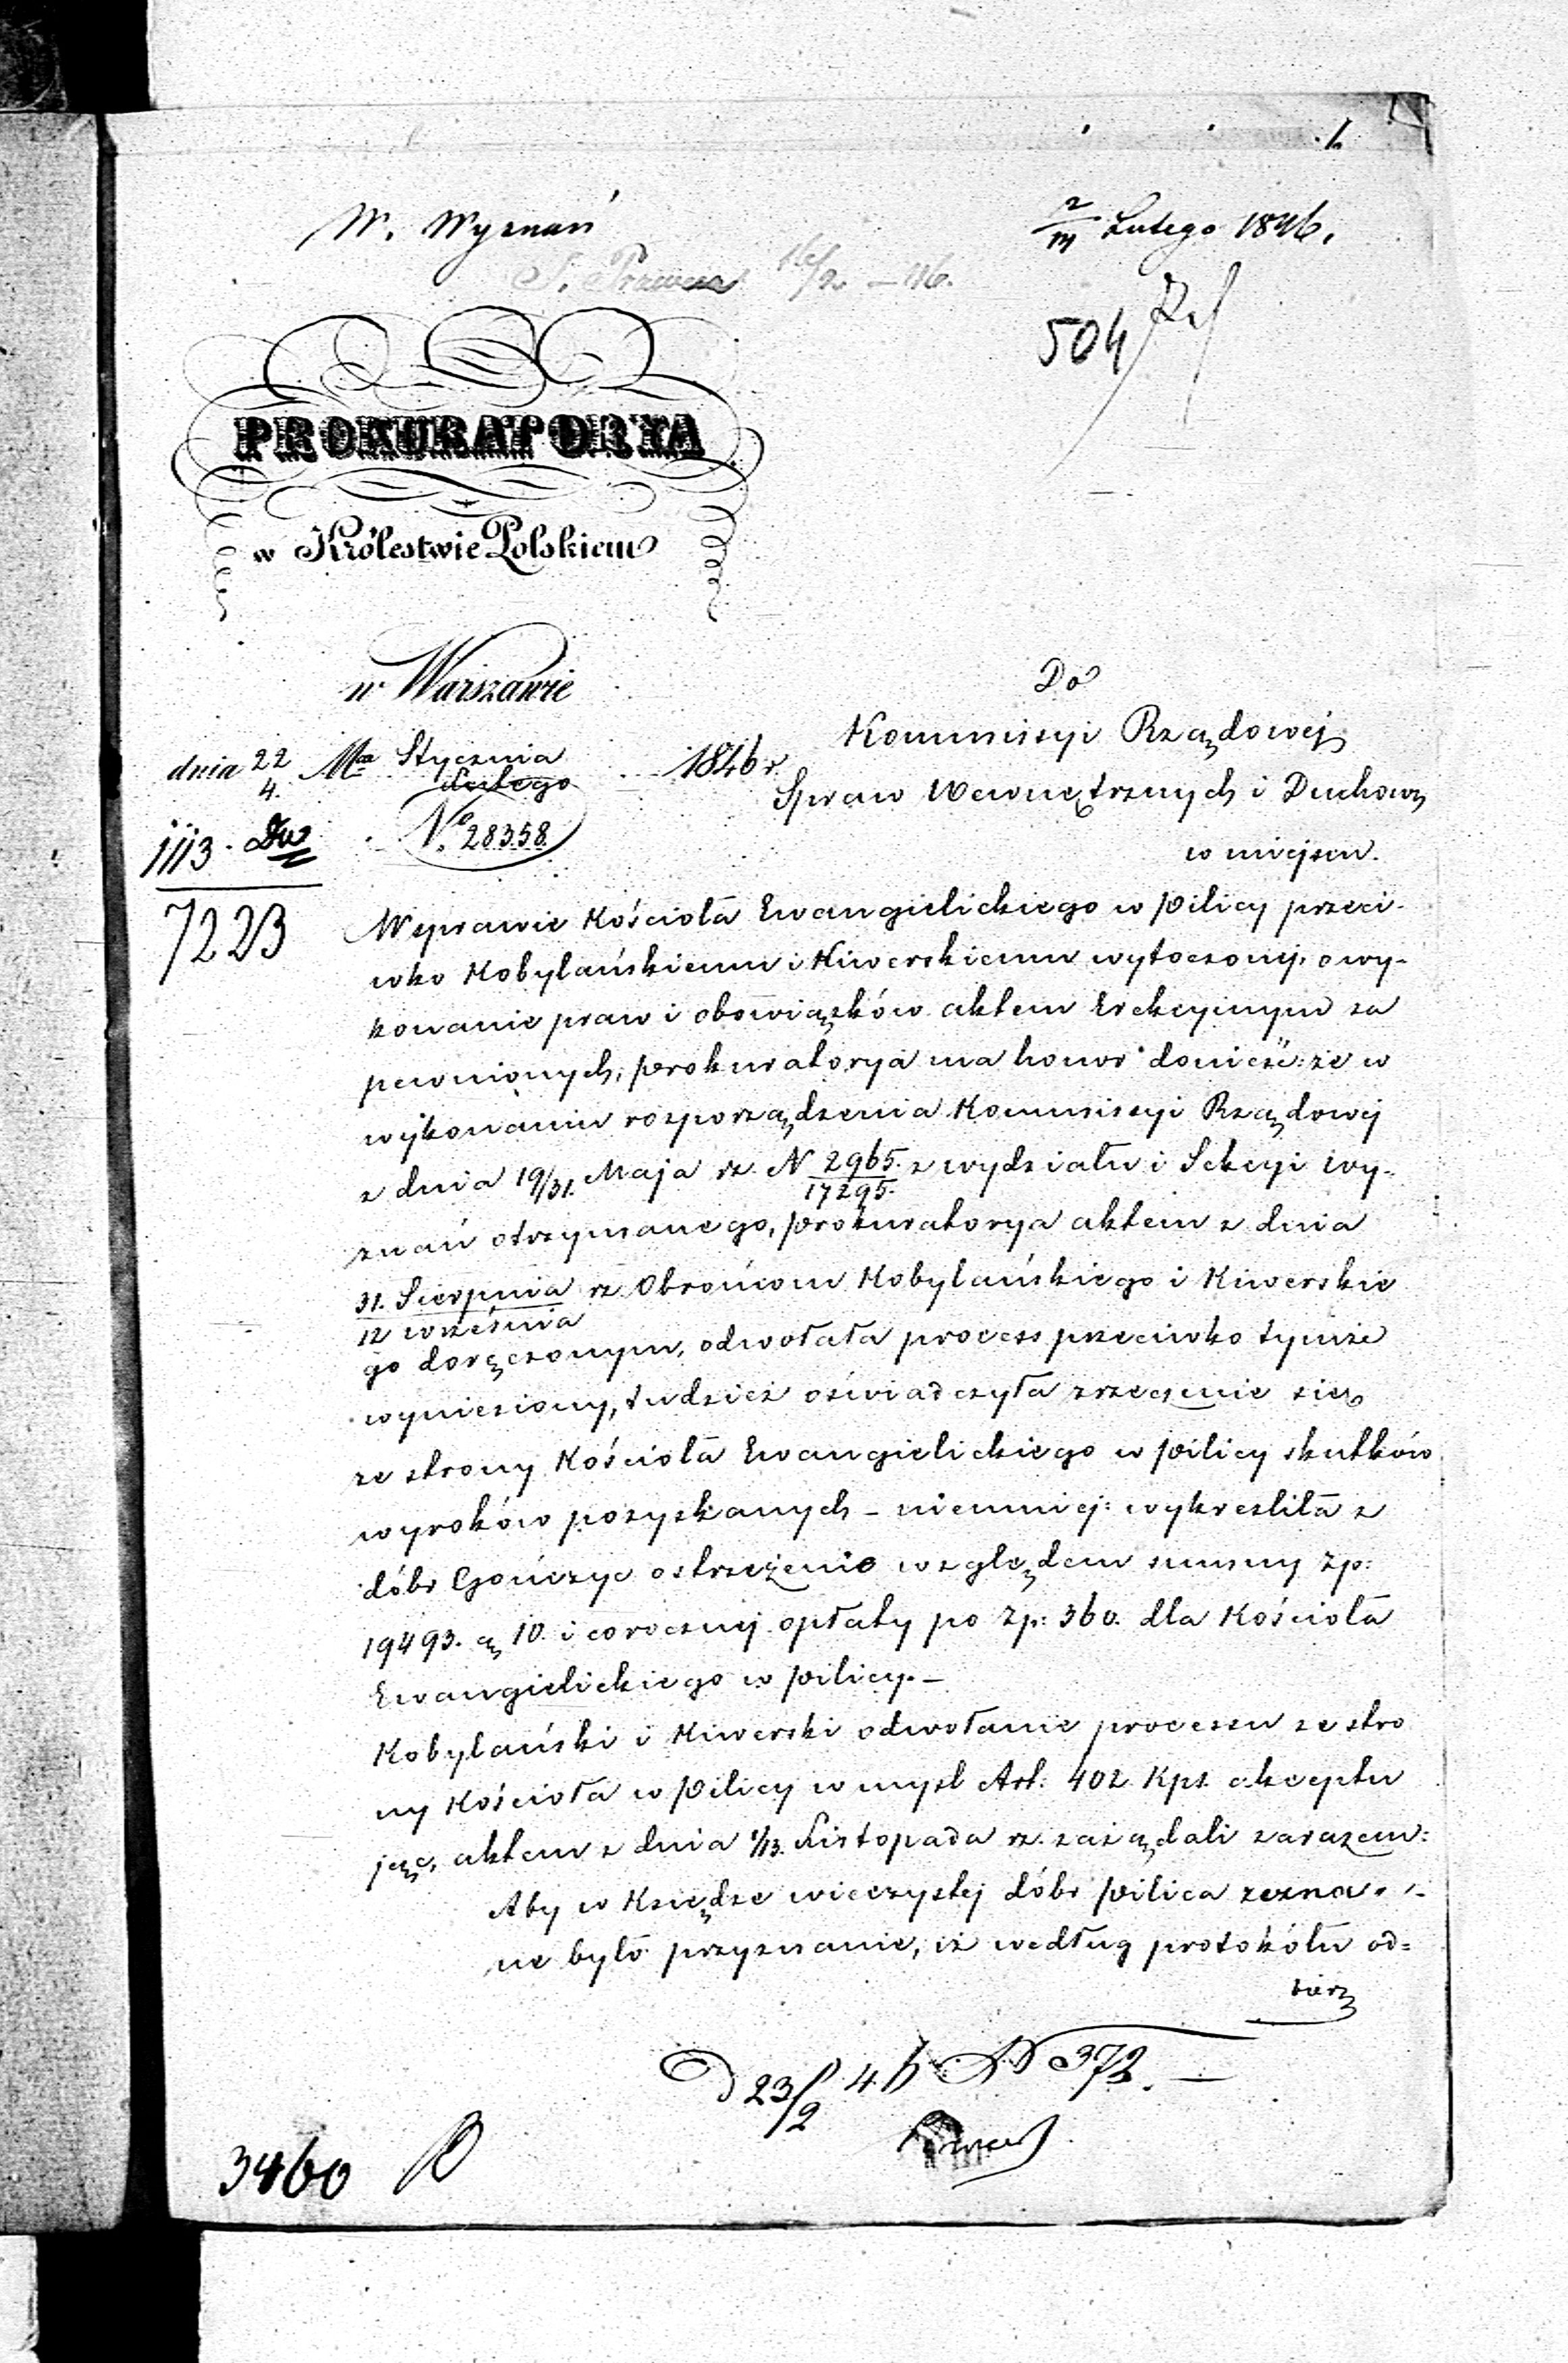 1.
W. Wyznań
2/14 Lutego 1846.
S. Prawna 16/2 – 46.
504
PROKURATORYA
w Królestwie Polskiem
w Warszawie
dnia 22/4. Mca Stycznia/Lutego 1846 r.
No. 28358.
1113.
7223
Do
Kommissyi Rządowej
Spraw Wewnętrznych i Duchown
w miejscu.
W sprawie Kościoła Ewangielickiego w Pilicy przeci-
wko Kobylańskiemu i Kiwerskiemu wytoczonej, o wy-
konanie praw i obowiązków aktem Erekcyinym za
pewnionych, Prokuratorya ma honor donieść: że w
wykonaniu rozporządzenia Kommissyi Rządowej
z dnia 19/31. Maja rz. N 2965./17295. z wydziału i Sekcyi wy-
znań otrzymanego, Prokuratorya aktem z dnia
31. Sierpnia/12 września rz. Obrońcom Kobylańskiego i Kiwerskie
go doręczonym, odwołała process przeciwko tymże
wyniesiony, tudzież oświadczyła zrzeczenie się
ze strony Kościoła Ewangielickiego w Pilicy skutków
wyroków pozyskanych – niemniej: wykreśliła z
dóbr Gończyc ostrzeżenie względem summy Zp:
19493. g 10. i corocznej opłaty po Zp: 360. dla Kościoła
Ewangielickiego w Pilicy. –
Kobylański i Kiwerski odwołanie processu ze stro
ny Kościoła w Pilicy w mysl Art: 402 Kps. akceptu
jąc, aktem z dnia 1/13. Listopada rz. zażądali zarazem:
Aby w Księdze wieczystej dóbr Pilica zezna-
ne było przyznanie, iż według protokółu od=
bierz
D 23/2 46 N 372. –
3460